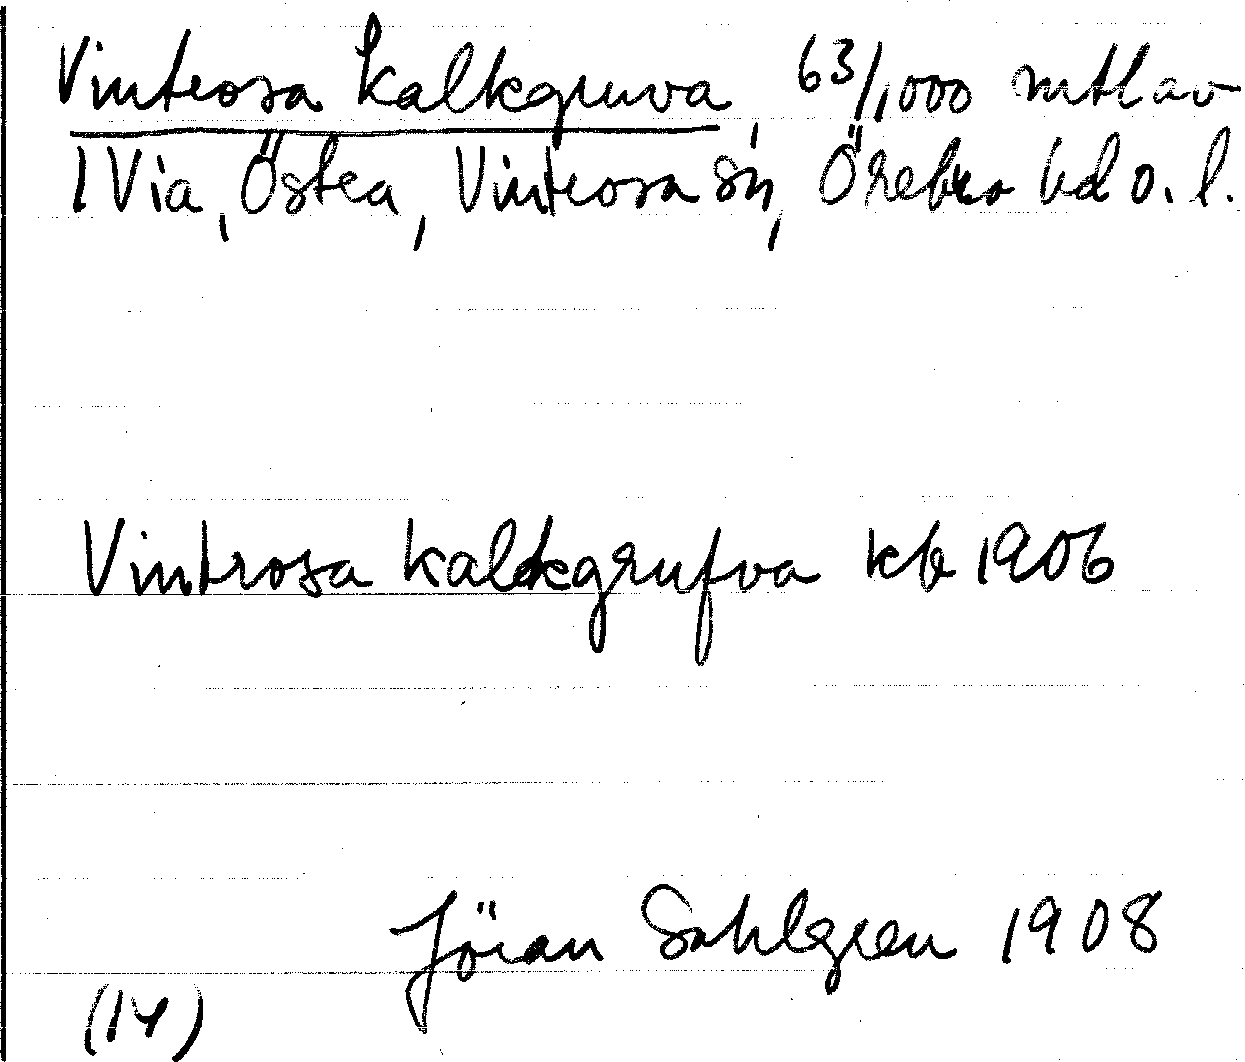 Vintrosa Kalkgruva, 63/1,000 mtl av
1 Via, Östra, Vintrosa sn, Örebro hd o. l.
Vintrosa kalkgrufva kb 1906
Jöran Sahlgren 1908
(14)